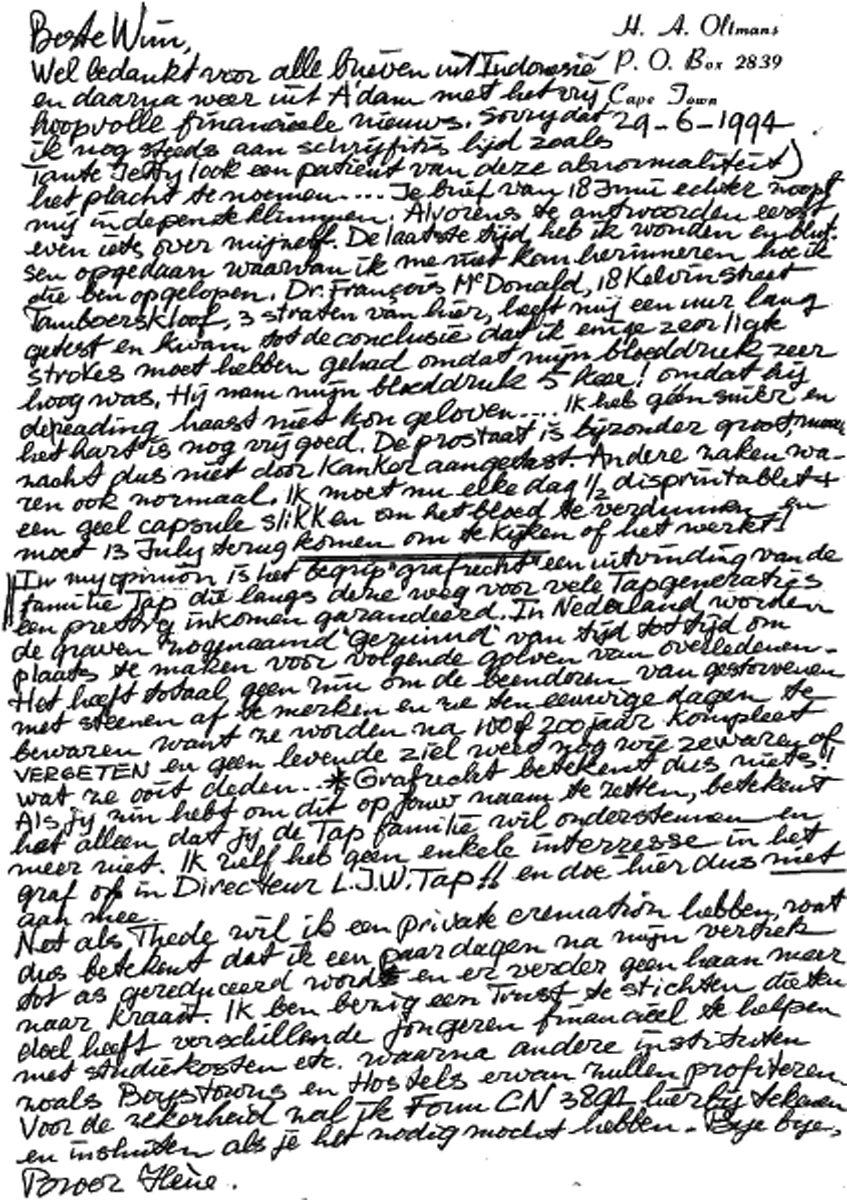 H. A. Oltmans
P. O. Box 2839
Cape Town
29-6-1994
Beste Wim,
Wel bedankt voor alle brieven uit Indonesië
en daarna weer uit A'dam met het vrij
hoopvolle financiële nieuws. Sorry dat
ik nog steeds aan schrijfitis lijd zoals
Tante Jetty (ook een patiënt van deze abnormaliteit)
het placht te noemen.... Je brief van 18 Juni echter noopt
mij in de pen te klimmen. Alvorens te antwoorden eerst
even iets over mijzelf. De laatste tijd heb ik wonden en blut-
sen opgedaan waarvan ik me niet kan herinneren hoe ik
die ben opgelopen. Dr. François McDonald, 18 Kelvin Street
Tamboerskloof, 3 straten van hier, heeft mij een uur lang
getest en kwam tot de conclusie dat ik enige zeer ligte
strokes moet hebben gehad omdat mijn bloeddruk zeer
hoog was. Hij nam mijn bloeddruk 5 keer! omdat hij
de reading haast niet kon geloven.... Ik heb géén suiker en
het hart is nog vrij goed. De prostaat is bijzonder groot,
nacht dus niet door kanker aangetast. Andere zaken wa-
ren ook normaal. Ik moet nu elke dag 1/2 disprin tablet +
een geel capsule slikken om het bloed te verdunnen en
moet 13 July terug komen om te kijken of het werkt!
In my opinion is het begrip "grafrecht" een uitvinding van de
familie Tap die langs deze weg voor vele Tapgeneraties
een prettig inkomen garandeerd. In Nederland worden
de graven zogenaamd "geruimd" van tijd tot tijd om
plaats te maken voor volgende golven van overledenen.
Het heeft totaal geen zin om de beenderen van gestorvenen
met steenen af te merken en ze ten eeuwige dagen te
bewaren want ze worden na 100 of 200 jaar kompleet
VERGETEN en geen levende ziel weet nog wie ze waren of
wat ze ooit deden... * Grafrecht betekent dus niets!
Als jij zin hebt om dit op jouw naam te zetten, betekent
het alleen dat jij de Tap familie wil ondersteunen en
meer niet. Ik zelf heb geen enkele interesse in het
graf of in Directeur L.J.W. Tap!! en doe hier dus niet
aan mee.
Net als Thede wil ik een private cremation hebben, wat
dus betekent dat ik een paar dagen na mijn vertrek
tot as gereduceerd wordt en er verder geen haan meer
naar kraait. Ik ben bezig een Trust te stichten die ten
doel heeft verschillende jongeren financiëel te helpen
met studiekosten etc. waarna andere instituten
zoals Boystowns en Hostels ervan zullen profiteren.
Voor de zekerheid zal ik Form CN 3892 hierbij tekenen
en insluiten als je het nodig mocht hebben. Bye bye,
Broer Hène.